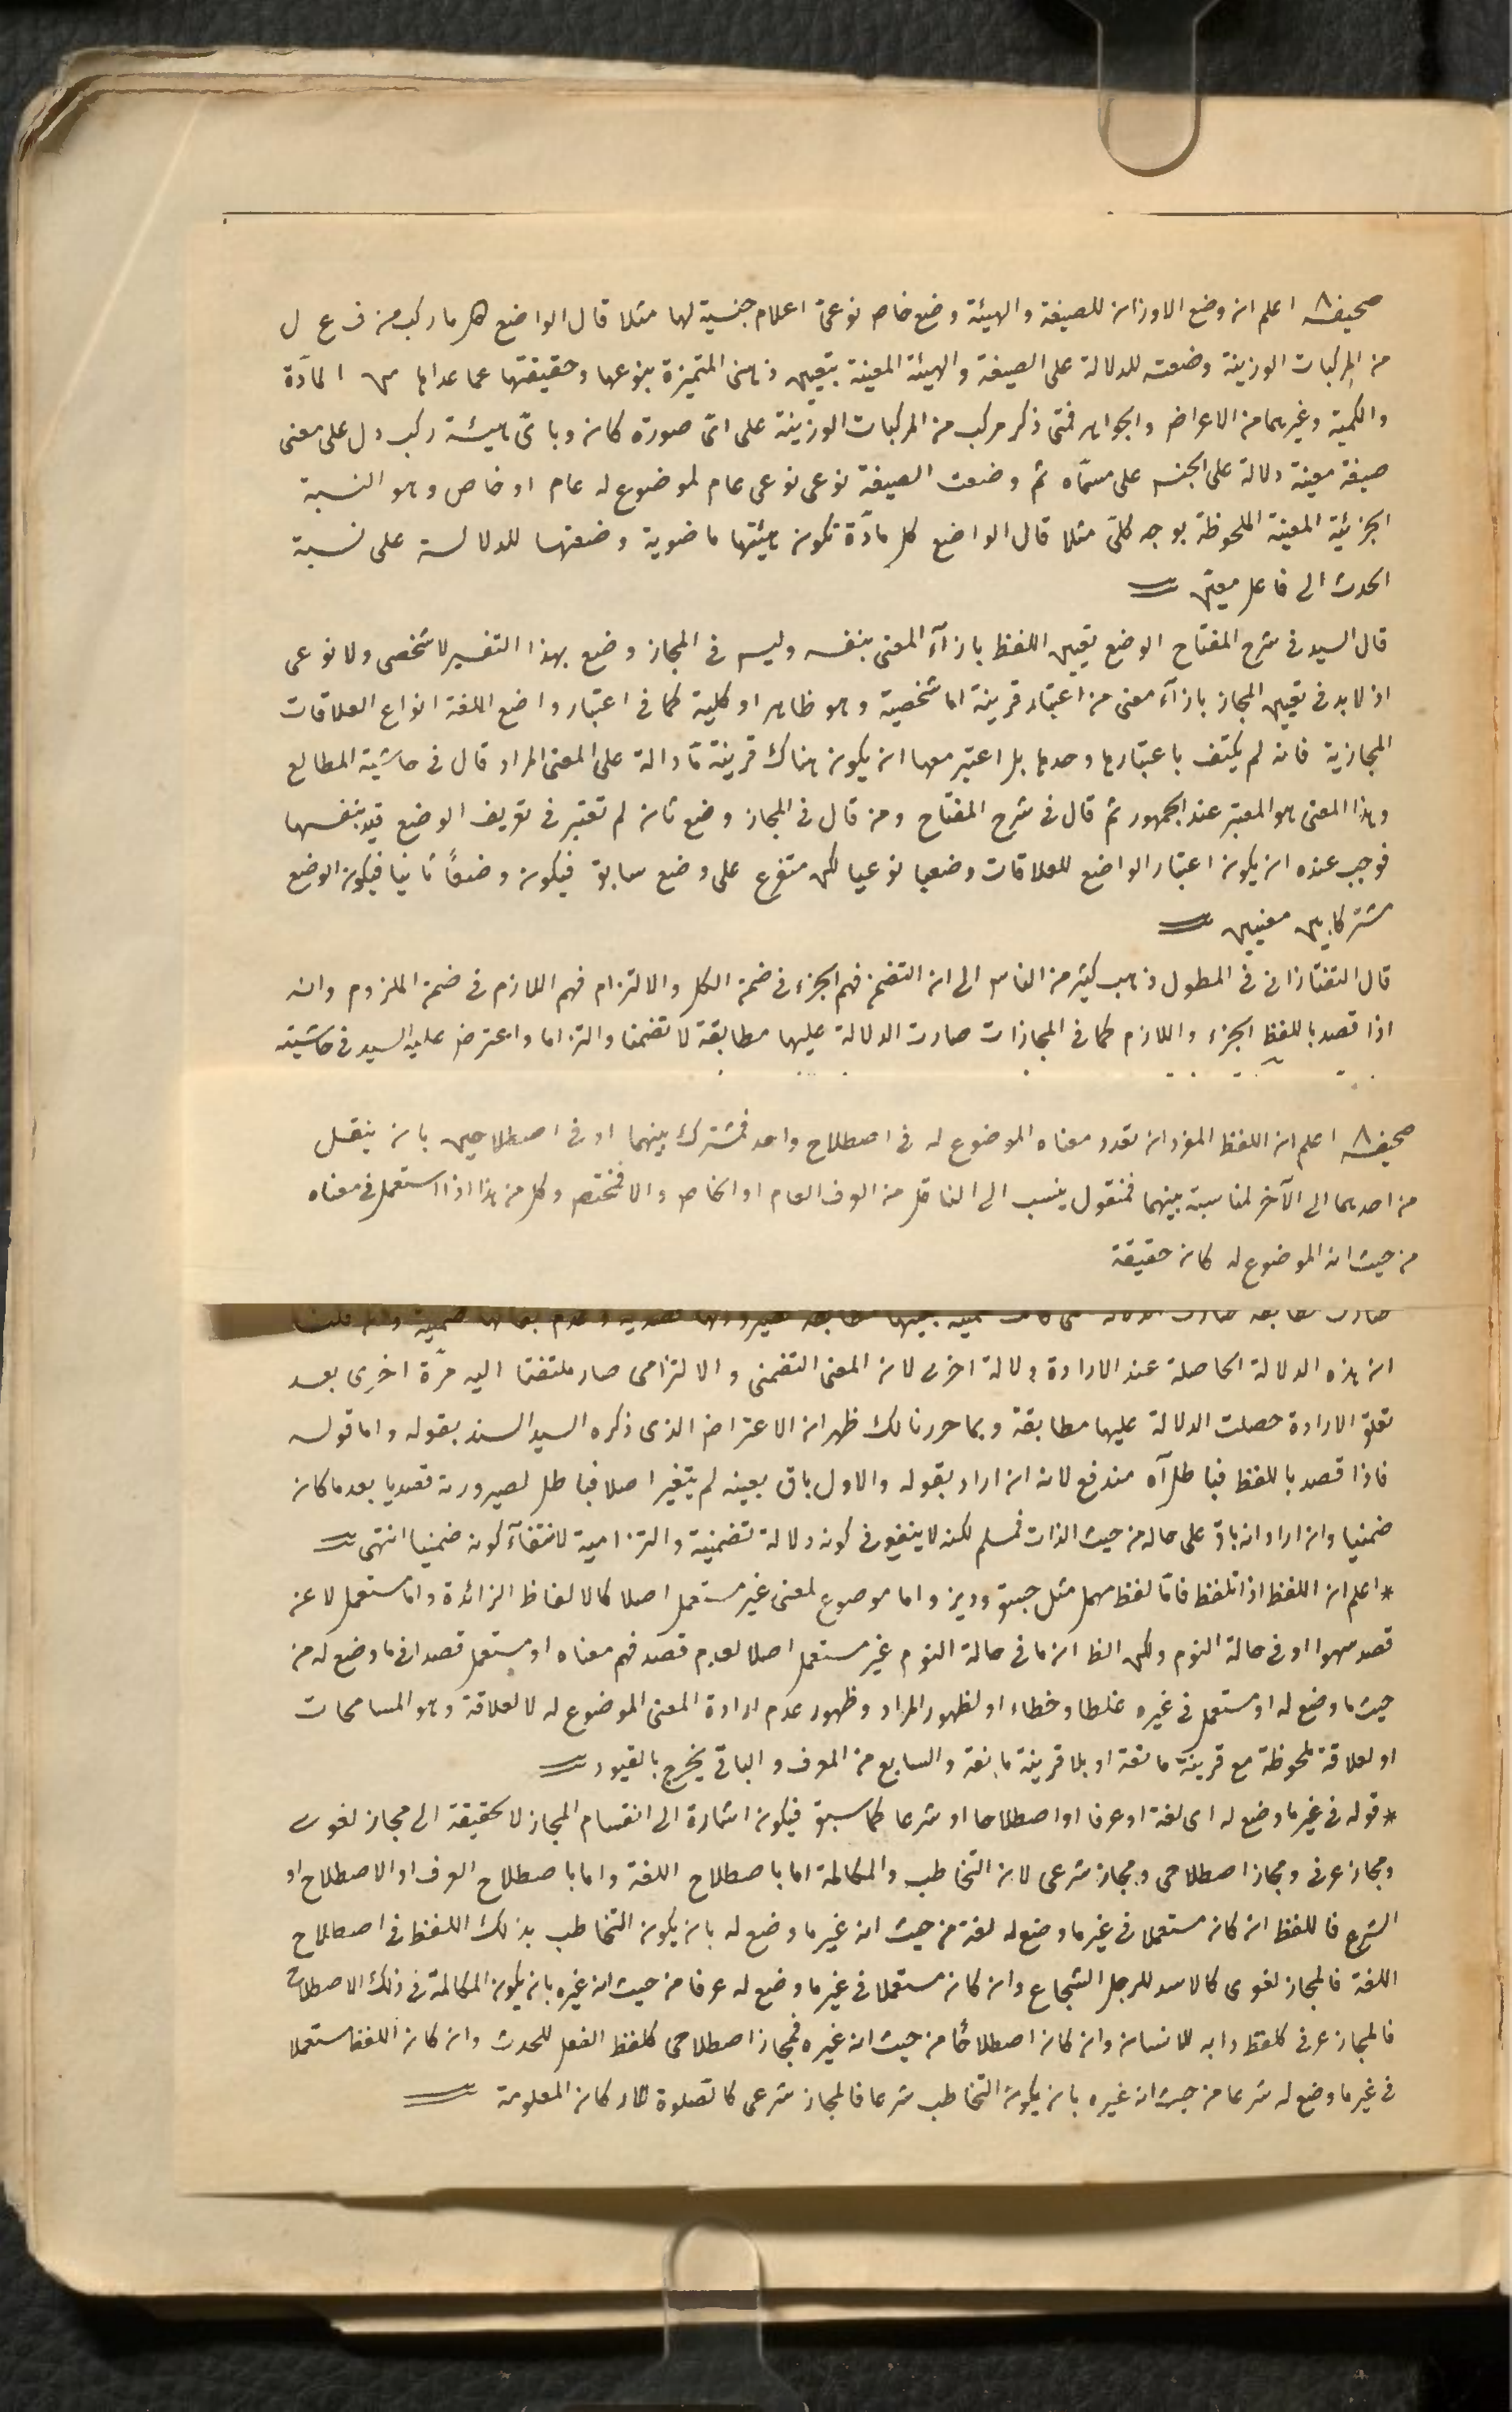 صحيفه ٨ اعلم ان وضع الاوزان للصيغة والهيئة وضع خاص نوعى اعلام جنسية لها مثلا قال الواضع كل ما ركب من ف ع ل
من المركبات الوزنية وضعته للدلالة على الصيغة والهيئة المعينة بتعيين ذهنى المتميزة بنوعها وحقيقتها عما عداها من المادّة
والكمية وغيرهما من الاعراض والجواهر فمتى ذكر مركب من المركبات الوزنية على اىّ صورة كان وباىّ هيئة ركب دل على معنى
صيغة معينة دلالة علم الجنس على مسمّاه ثم وضعت الصيغة نوعى نوعى عام لموضوع له عام او خاص وهو النسبة
الجزئية المعينة الملحوظة بوجه كلىّ مثلا قال الواضع كل مادّة تكون هيئتها ماضوية وضعتها للدلالة على نسبة
الحدث الى فاعل معيّن
قال السيد فى شرح المفتاح الوضع تعيين اللفظ بازآء المعنى بنفسه وليس فى المجاز وضع بهذا التفسير لا شخصى ولا نوعى
اذ لا بد فى تعيين المجاز بازآء معنى من اعتبار قرينة اما شخصية وهو ظاهر او كلية كما فى اعتبار واضع اللغة انواع العلاقات
المجازية فانه لم يكتف باعتبارها وحدها بل اعتبر معها ان يكون هناك قرينة مّا دالة على المعنى المراد قال فى حاشية المطالع
وهذا المعنى هو المعتبر عند الجمهور ثم قال فى شرح المفتاح ومن قال فى المجاز وضع ثان لم تعتبر فى تعريف الوضع قيد بنفسها
فوجب عنده ان يكون اعتبار الواضع للعلاقات وضعيا نوعيا لكن متفرع على وضع سابق فيكون وضعًا ثانيا فيكون الوضع
مشتركا بين معنيين
قال التفتازانى فى المطول ذهب كثير من الناس الى ان التضمن فهم الجزء فى ضمن الكل والالتزام فهم اللازم فى ضمن الملزوم وانه
اذا قصد باللفظ الجزء واللازم كما فى المجازات صارت الدلالة عليها مطابقة لا تضمنا والتزاما واعترض عليه السيد فى حاشيته
صحيفه ٨ اعلم ان اللفظ المفرد ان تعدد معناه الموضوع له فى اصطلاح واحد فمشترك بينهما او فى اصطلاحين بان ينقل
من احدهما الى الآخر لمناسبة بينهما فمنقول ينسب الى الناقل من العرف العام او الخاص والا فمختص وكل من هذا اذا استعمل فى معناه
من حيث انه الموضوع له كان حقيقة
ان هذه الدلالة الحاصلة عند الارادة دلالة اخرى لان المعنى التضمنى والالتزامى صار ملتفتا اليه مرّة اخرى بعد
تعلق الارادة حصلت الدلالة عليها مطابقة وبما حررنا لك ظهر ان الاعتراض الذى ذكره السيد السند بقوله واما قوله
فاذا قصد باللفظ فباطل آه مندفع لانه ان اراد بقوله والاول باق بعينه لم يتغير اصلا فباطل لصيرورته قصديا بعد ما كان
ضمنيا وان اراد انه باق على حاله من حيث الذات فمسلم لكنه لا ينفع فى كونه دلالة تضمنية والتزامية لانتفآء كونه ضمنيا انتهى
* اعلم ان اللفظ اذا تلفظ فامّا لفظ مهمل مثل جسق وديز واما موضوع لمعنى غير مستعمل اصلا كالالفاظ الزائدة واما مستعمل لا عن
قصد سهوا او فى حالة النوم ولكن الظ ان ما فى حالة النوم غير مستعمل اصلا لعدم قصد فهم معناه او مستعمل قصدا فى ما وضع له من
حيث ما وضع له او مستعمل فى غيره غلطا وخطاء او لظهور المراد وظهور عدم ارادة المعنى الموضوع له لا لعلاقة وهو المسامحات
او لعلاقة ملحوظة مع قرينة مانعة او بلا قرينة مانعة والسابع من المعرف والباقى يخرج بالقيود
* قوله فى غير ما وضع له اى لغة او عرفا او اصطلاحا او شرعا كما سبق فيكون اشارة الى انقسام المجاز لا كحقيقة الى مجاز لغوى
ومجاز عرفى ومجاز اصطلاحى ومجاز شرعى لان التخاطب والمكالمة اما باصطلاح اللغة واما باصطلاح العرف او الاصطلاح او
الشرع فاللفظ ان كان مستعملا فى غير ما وضع له لغة من حيث انه غير ما وضع له بان يكون التخاطب بذلك اللفظ فى اصطلاح
اللغة فالمجاز لغوى كالاسد للرجل الشجاع وان كان مستعملا فى غير ما وضع له عرفا من حيث انه غيره بان يكون المكالمة فى ذلك الاصطلاح
فالمجاز عرفى كلفظ دابه للانسان وان كان اصطلاحًا من حيث انه غيره فمجاز اصطلاحى كلفظ الفعل للحدث وان كان اللفظ مستعملا
فى غير ما وضع له شرعا من حيث انه غيره بان يكون التخاطب شرعا فالمجاز شرعى كالصلوة للاركان المعلومة